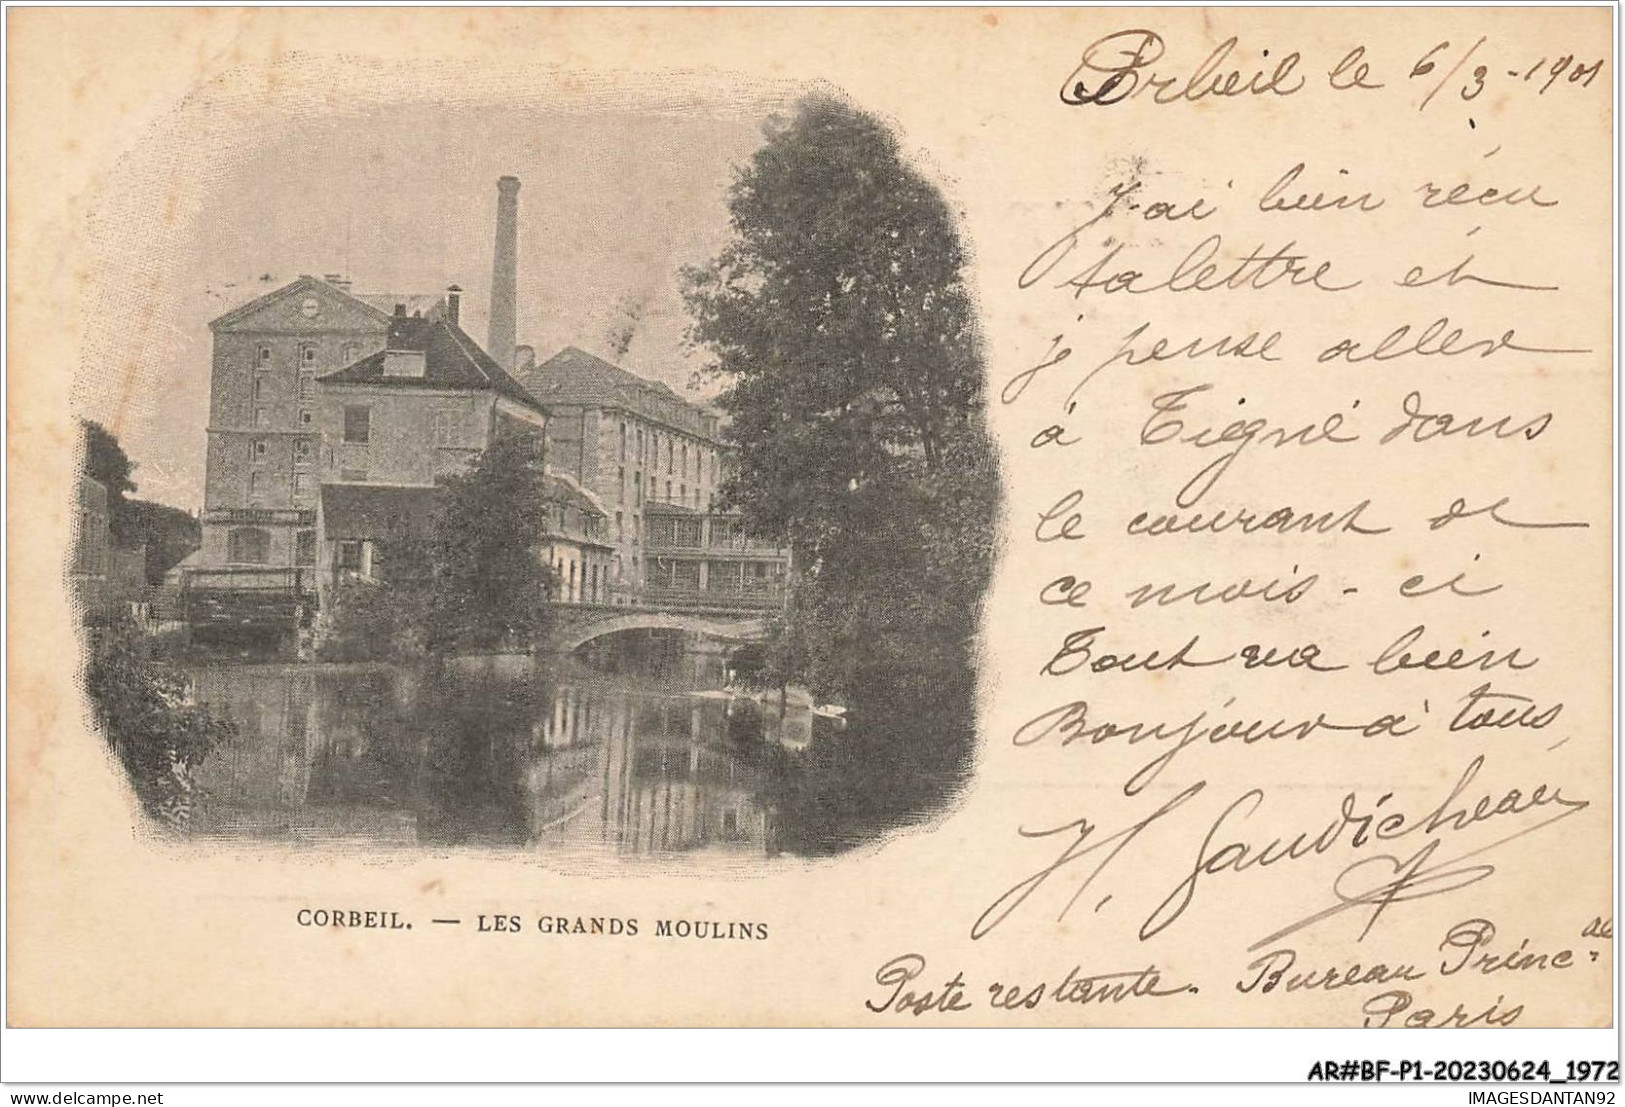 Corbeil le 6/3-1901
J'ai bien récu
ta lettre et
je pense aller
à Tigné dans
le courant de
ce mois-ci
Tout va bien
Bonjour à tous,
H. Gaudicheau
Poste restante. Bureau Princ.al
Paris
CORBEIL. — LES GRANDS MOULINS
AR#BF-P1-20230624_1972
delcampe.net
IMAGESDANTAN92